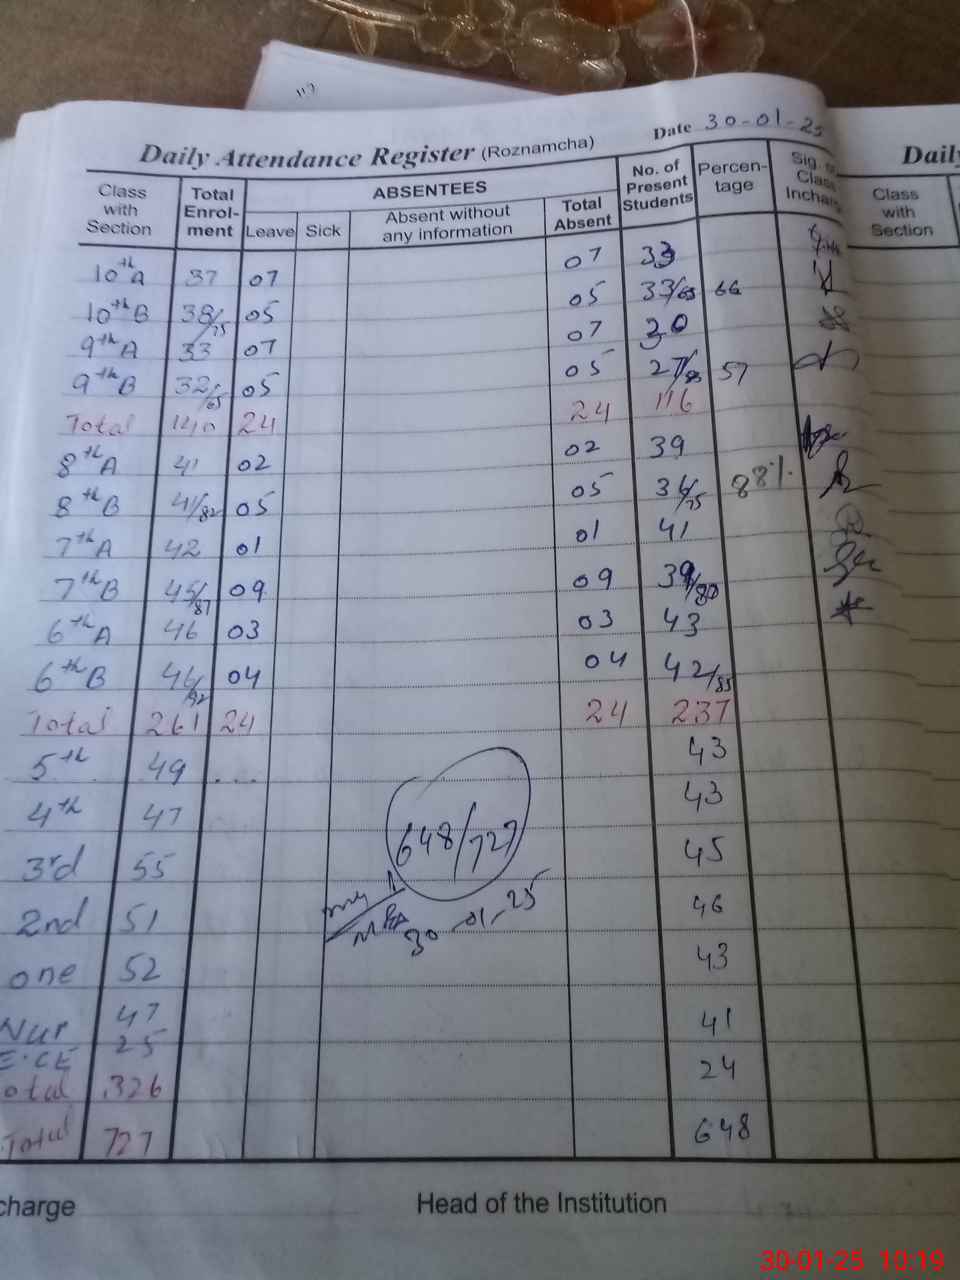 117
Daily Attendance Register (Roznamcha) Date 30-01-25
Class with Section Total Enrol-ment ABSENTEES Leave Sick Absent without any information Total Absent No. of Present Students Percen-tage Sig. of Class Inchar
10th A 37 07 07 33
10th B 38/75 05 05 33/65 66
9th A 33 07 07 30
9th B 32/65 05 05 27/ 57
Total 140 24 24 116
8th A 41 02 02 39
8th B 41/82 05 05 36/75 88%
7th A 42 01 01 41
7th B 45/87 09 09 39/80
6th A 46 03 03 43
6th B 46/92 04 04 42/85
Total 261 24 24 237
5th 49 ... 43
4th 47 43
3rd 55 45
648/727
2nd 51 46
30-01-25
one 52 43
Nur 47 41
E.CE 25 24
otal 326
Total 727 648
charge Head of the Institution
Daily
Class with Section
30-01-25 10:19